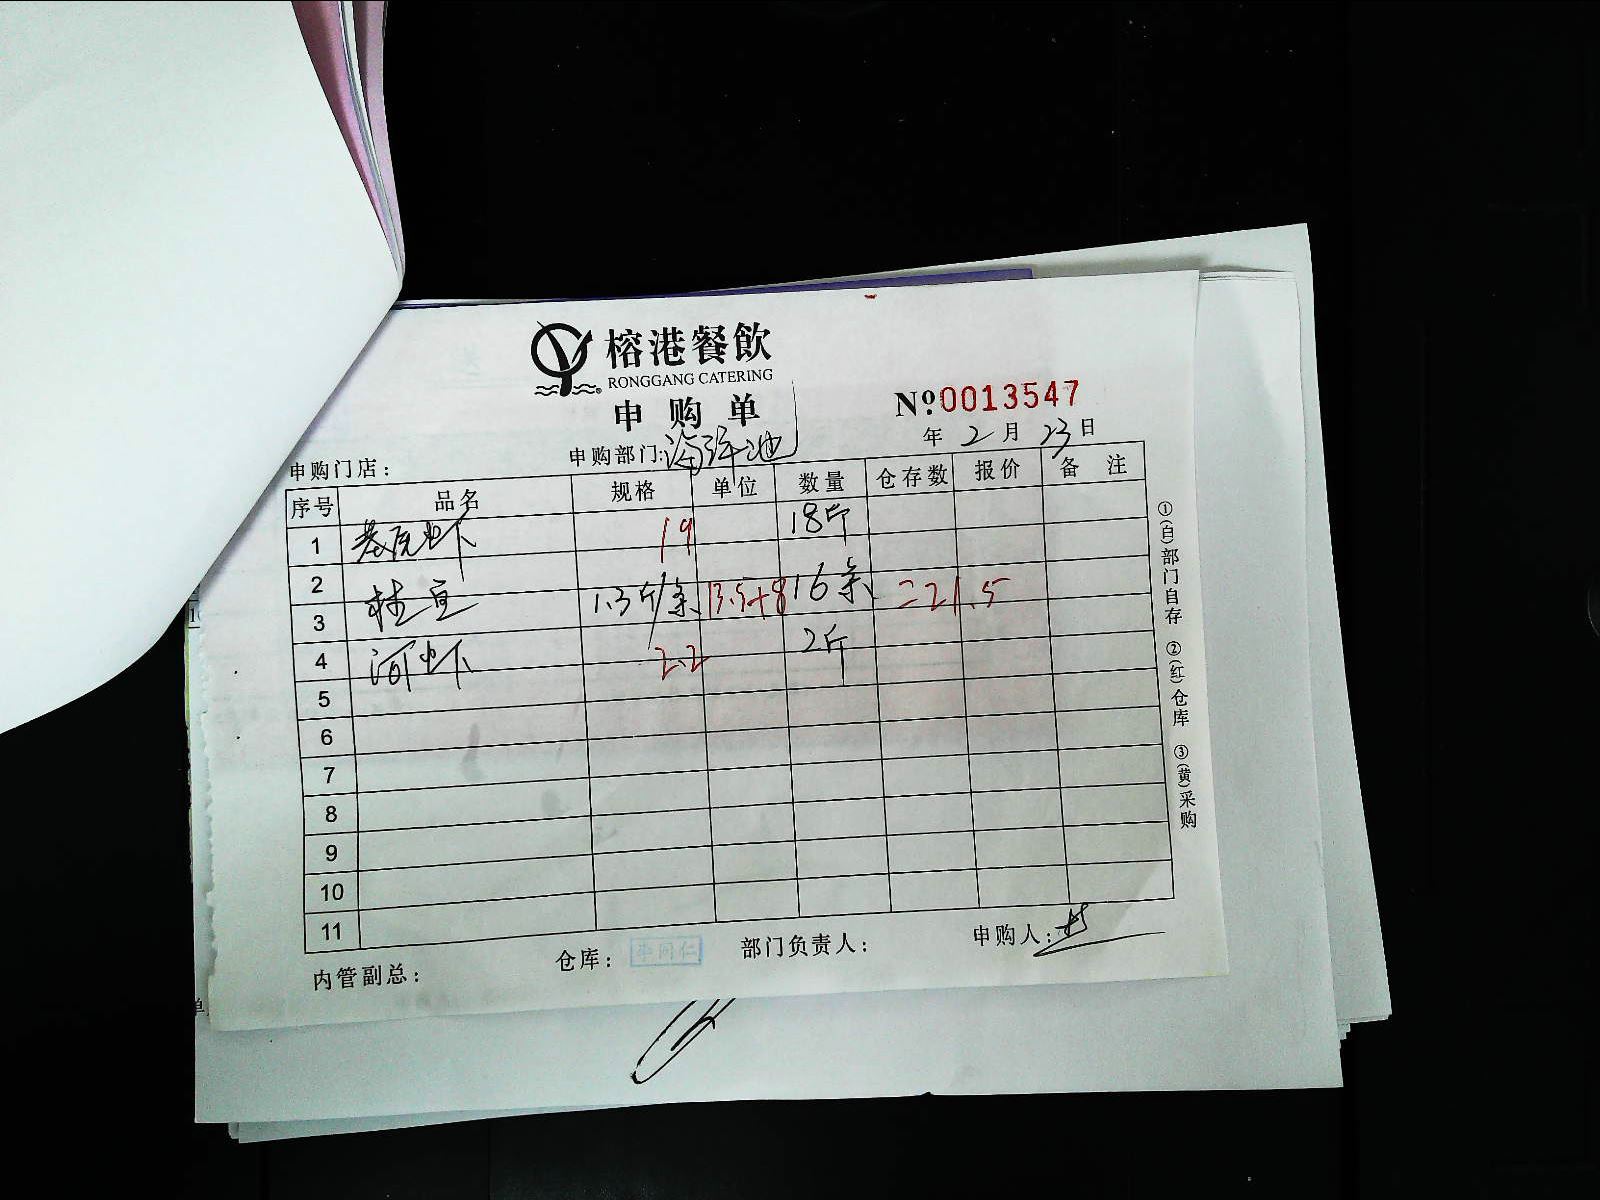 榕港餐飲
RONGGANG CATERING
申购单
№0013547
年 2 月 23 日
申购门店： 申购部门：海鲜池
序号 品名 规格 单位 数量 仓存数 报价 备注
1 基围虾 19 18斤
2
3 桂鱼 1.3斤/条 13.5+8 16条 =21.5
4 河虾 2.2 2斤
5
6
7
8
9
10
11
内管副总： 仓库： 牛同仁 部门负责人： 申购人：
①(白)部门自存 ②(红)仓库 ③(黄)采购
单